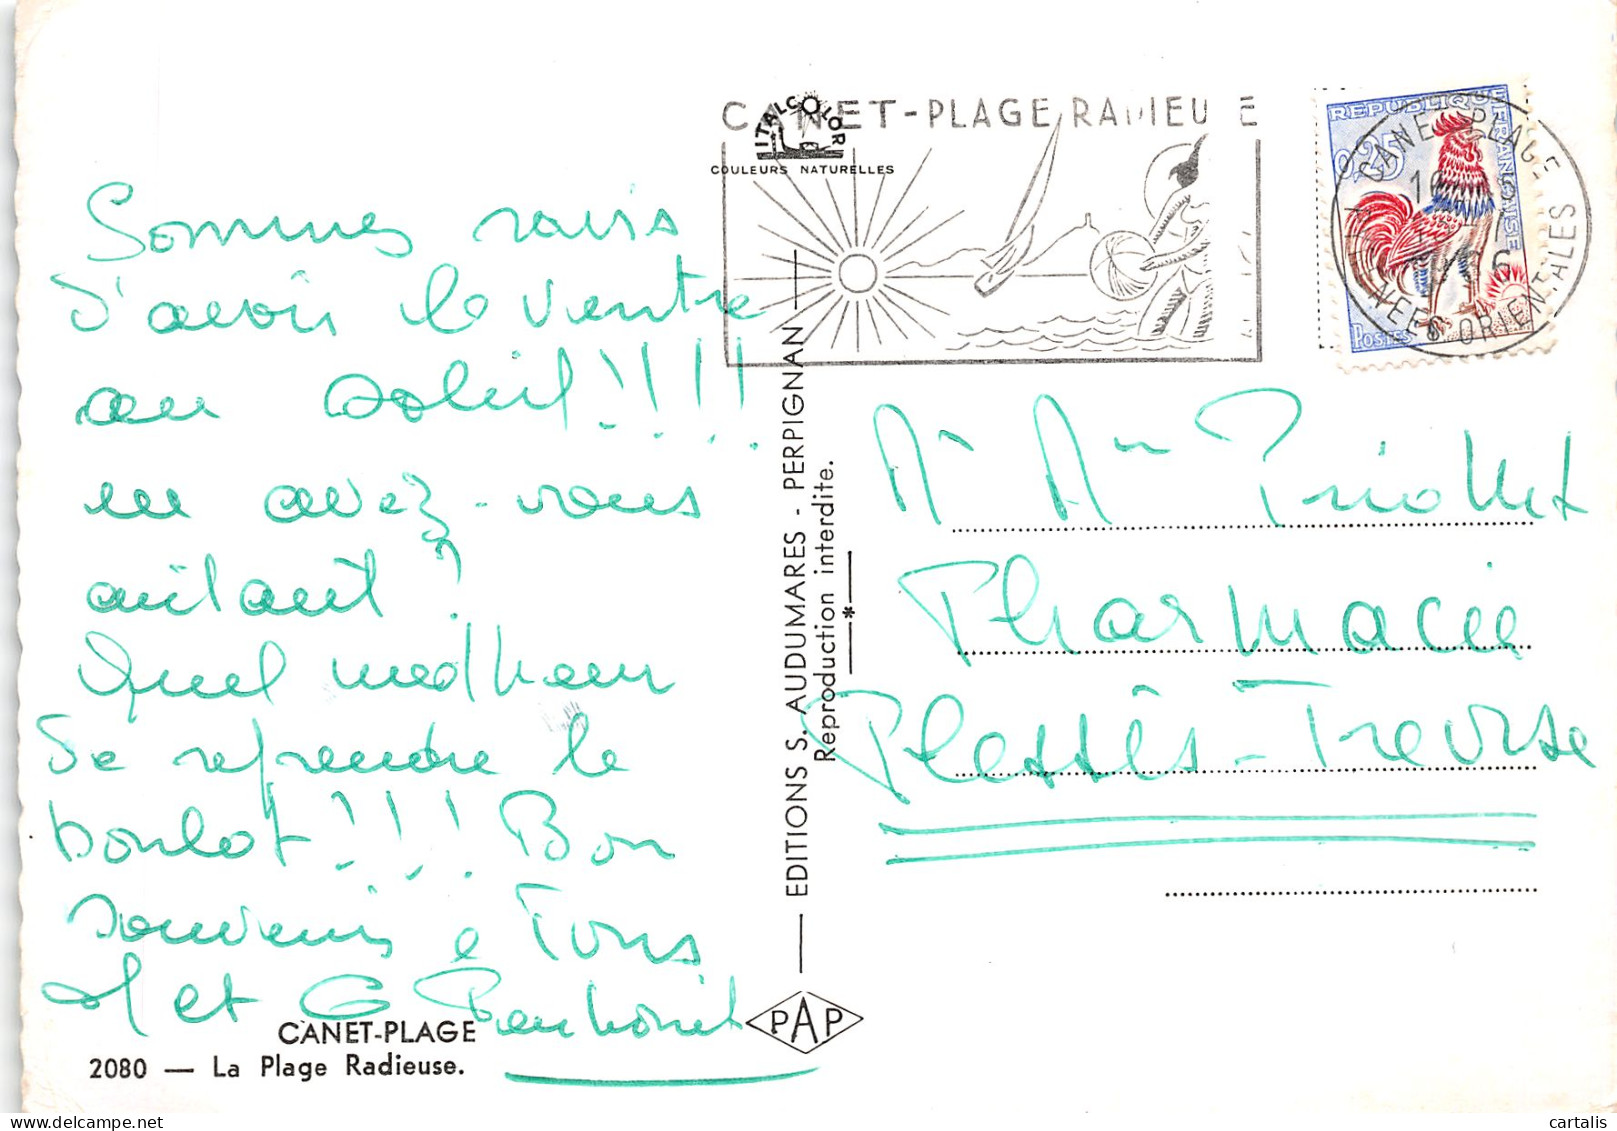 CANET-PLAGE RADIEUSE
ITALCOLOR
COULEURS NATURELLES
REPUBLIQUE FRANÇAISE
0,25
POSTES
CANET PLAGE
NEES ORIENTALES
Sommes ravis
d'avoir le ventre
au soleil!!!!
en avez-vous
autant?
Quel malheur
de reprendre le
boulot!!! Bon
souvenir à Tous
et G
M Mme Priollet
Pharmacie
Plessis-Trevise
EDITIONS S. AUDUMARES - PERPIGNAN
Reproduction interdite.
PAP
CANET-PLAGE
2080 — La Plage Radieuse.
cartalis